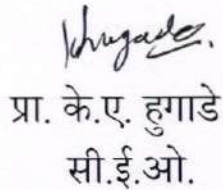 प्रा. के.ए. हुगाडे
सी.ई.ओ.